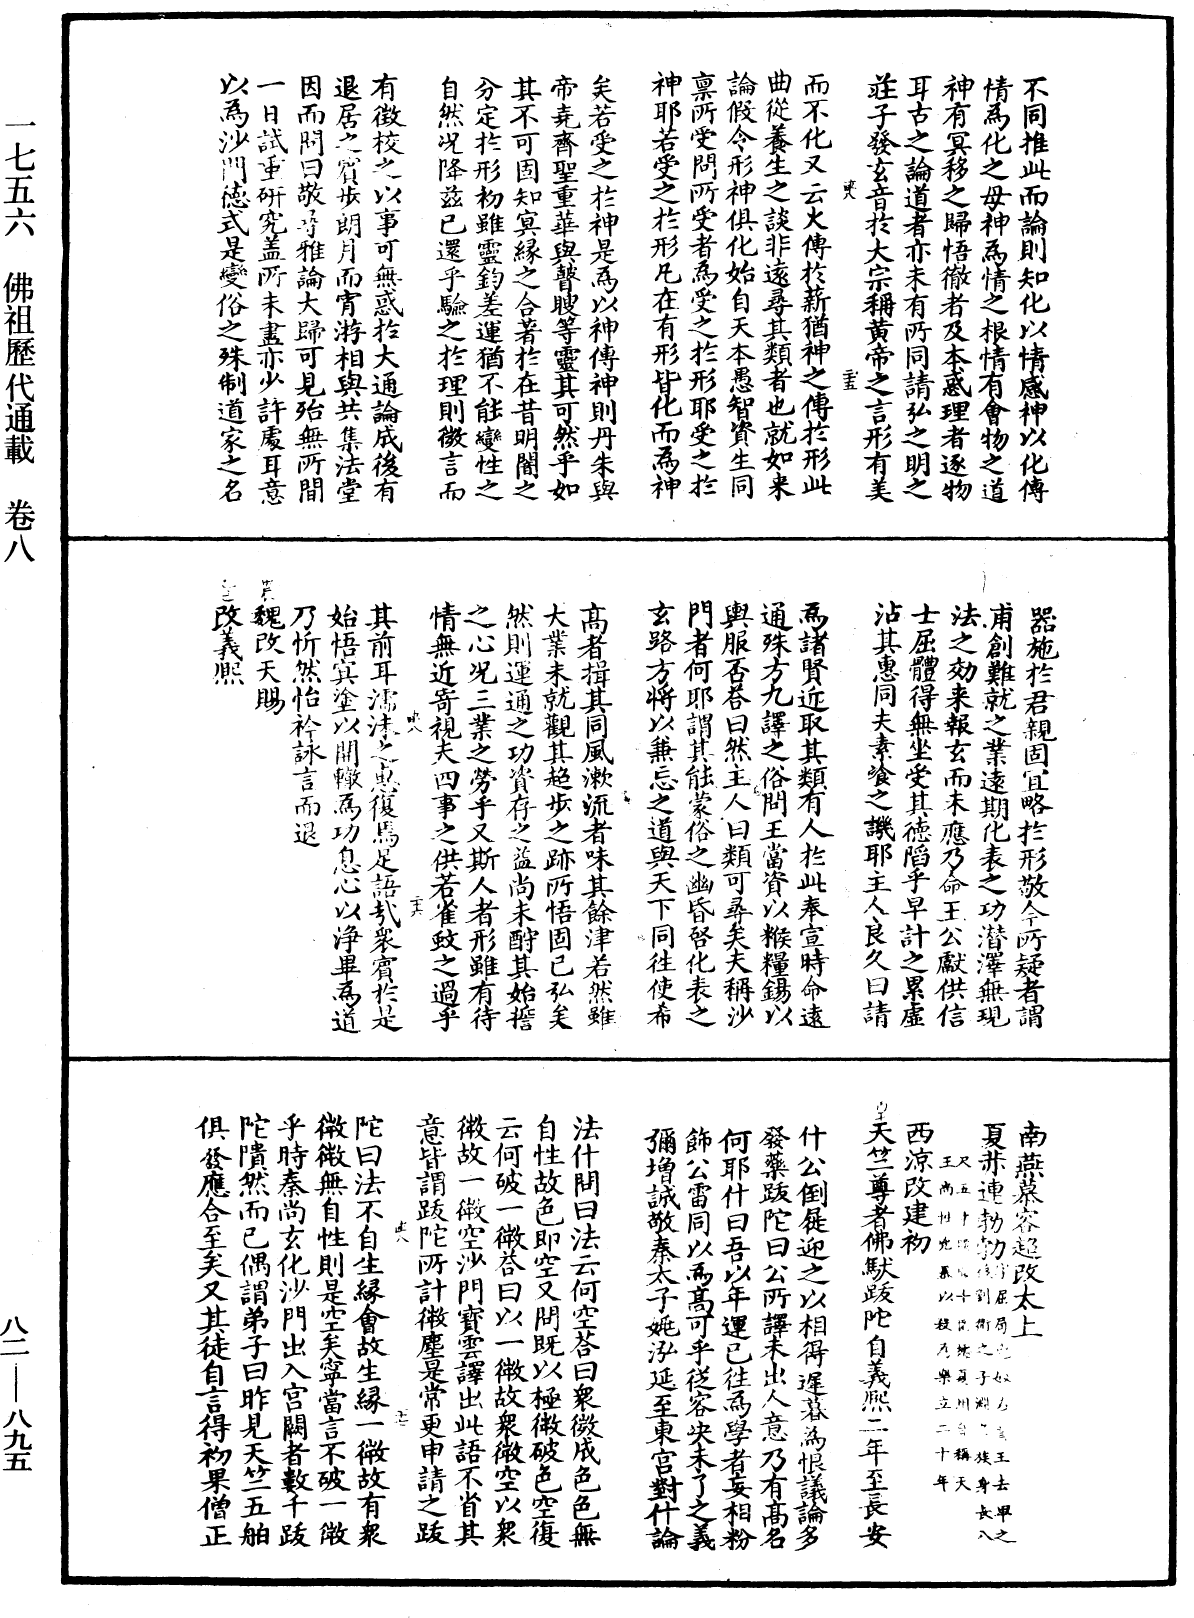 一七五六　佛祖歷代通載　卷八
八二—八九五
不同推此而論則知化以情感神以化傳
情為化之母神為情之根情有會物之道
神有冥移之歸悟徹者及本惑理者逐物
耳古之論道者亦未有所同請弘之明之
莊子發玄音於大宗稱黃帝之言形有美
而不化又云火傳於薪猶神之傳於形此
曲從養生之談非遠尋其類者也就如來
論假令形神俱化始自天本愚智資生同
稟所受問所受者為受之於形耶受之於
神耶若受之於形凡在有形皆化而為神
矣若受之於神是為以神傳神則丹朱與
帝堯齊聖重華與瞽瞍等靈其可然乎如
其不可固知冥緣之合著於在昔明闇之
分定於形初雖靈鈞差運猶不能變性之
自然況降茲已還乎驗之於理則微言而
有徵校之以事可無惑於大通論成後有
退居之賓步朗月而宵游相與共集法堂
因而問曰敬尋雅論大歸可見殆無所間
一日試重研究蓋所未盡亦少許處耳意
以為沙門德式是變俗之殊制道家之名
器施於君親固宜略於形敬今所疑者謂
甫創難就之業遠期化表之功潛澤無現
法之効來報玄而未應乃命王公獻供信
士屈體得無坐受其德陷乎早計之累虛
沾其惠同夫素飡之譏耶主人良久曰請
為諸賢近取其類有人於此奉宣時命遠
通殊方九譯之俗問王當資以糇糧錫以
輿服否荅曰然主人曰類可尋矣夫稱沙
門者何耶謂其能蒙俗之幽昏啓化表之
玄路方將以兼忘之道與天下同往使希
高者揖其同風漱流者味其餘津若然雖
大業未就觀其超步之跡所悟固已弘矣
然則運通之功資存之益尚未酧其始誓
之心況三業之勞乎又斯人者形雖有待
情無近寄視夫四事之供若雀蚊之過乎
其前耳濡沫之惠復焉足語哉衆賓於是
始悟冥塗以開轍為功息心以淨畢為道
乃忻然怡衿詠言而退
魏改天賜
改義熙
南燕慕容超改太上
夏赫連勃勃
西涼改建初
天竺尊者佛馱跋陀自義熙二年至長安
什公倒屣迎之以相得遲暮為恨議論多
發藥跋陀曰公所譯未出人意乃有高名
何耶什曰吾以年運已往為學者妄相粉
飾公雷同以為高可乎從容決未了之義
彌增誠敬秦太子姚泓延至東宮對什論
法什問曰法云何空荅曰衆微成色色無
自性故色即空又問既以極微破色空復
云何破一微荅曰以一微故衆微空以衆
微故一微空沙門寶雲譯出此語不省其
意皆謂跋陀所計微塵是常更申請之跋
陀曰法不自生緣會故生緣一微故有衆
微微無自性則是空矣寧當言不破一微
乎時秦尚玄化沙門出入宮闕者數千跋
陀隤然而已偶謂弟子曰昨見天竺五舶
俱發應合至矣又其徒自言得初果僧正